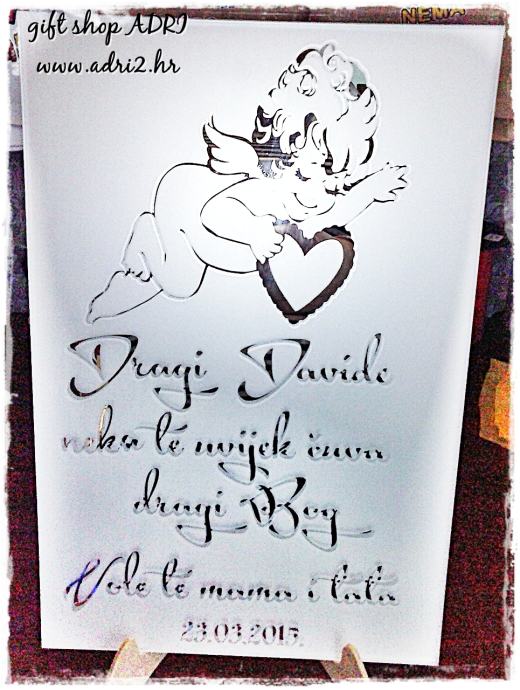 gift shop ADRI
NEMA
www.adri2.hr
Dragi Davide
neka te uvijek čuva
dragi Bog
Vole te mama i tata
23.03.2015.